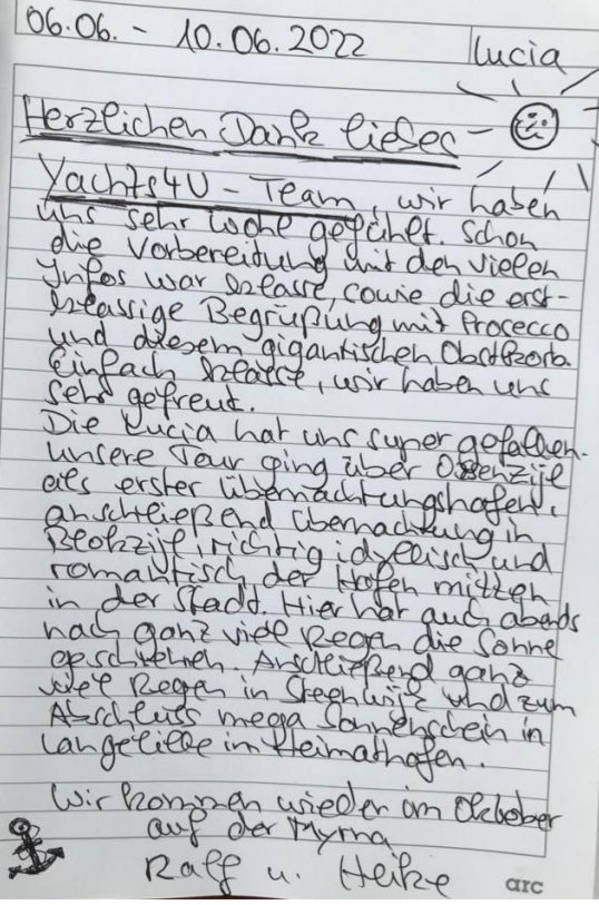 06.06. - 10.06.2022
Lucia
Herzlichen Dank liebes
Yachts4U - Team, wir haben
uns sehr wohl gefühlt. Schon
die Vorbereitung mit den vielen
Infos war klasse, sowie die erst-
klassige Begrüßung mit Prosecco
und diesem gigantischen Obstkorb.
Einfach klasse, wir haben uns
sehr gefreut.
Die Lucia hat uns super gefallen.
Unsere Tour ging über Ossenzijl
als erster Übernachtungshafen,
anschließend Übernachtung in
Blokzijl, richtig idyllisch und
romantisch der Hafen mitten
in der Stadt. Hier hat auch abends
nach ganz viel Regen die Sonne
geschienen. Anschließend ganz
viel Regen in Steenwijk und zum
Abschluss mega Sonnenschein in
Langelille im Heimathafen.
Wir kommen wieder im Oktober
auf der Myrna
Ralf u. Heike
arc